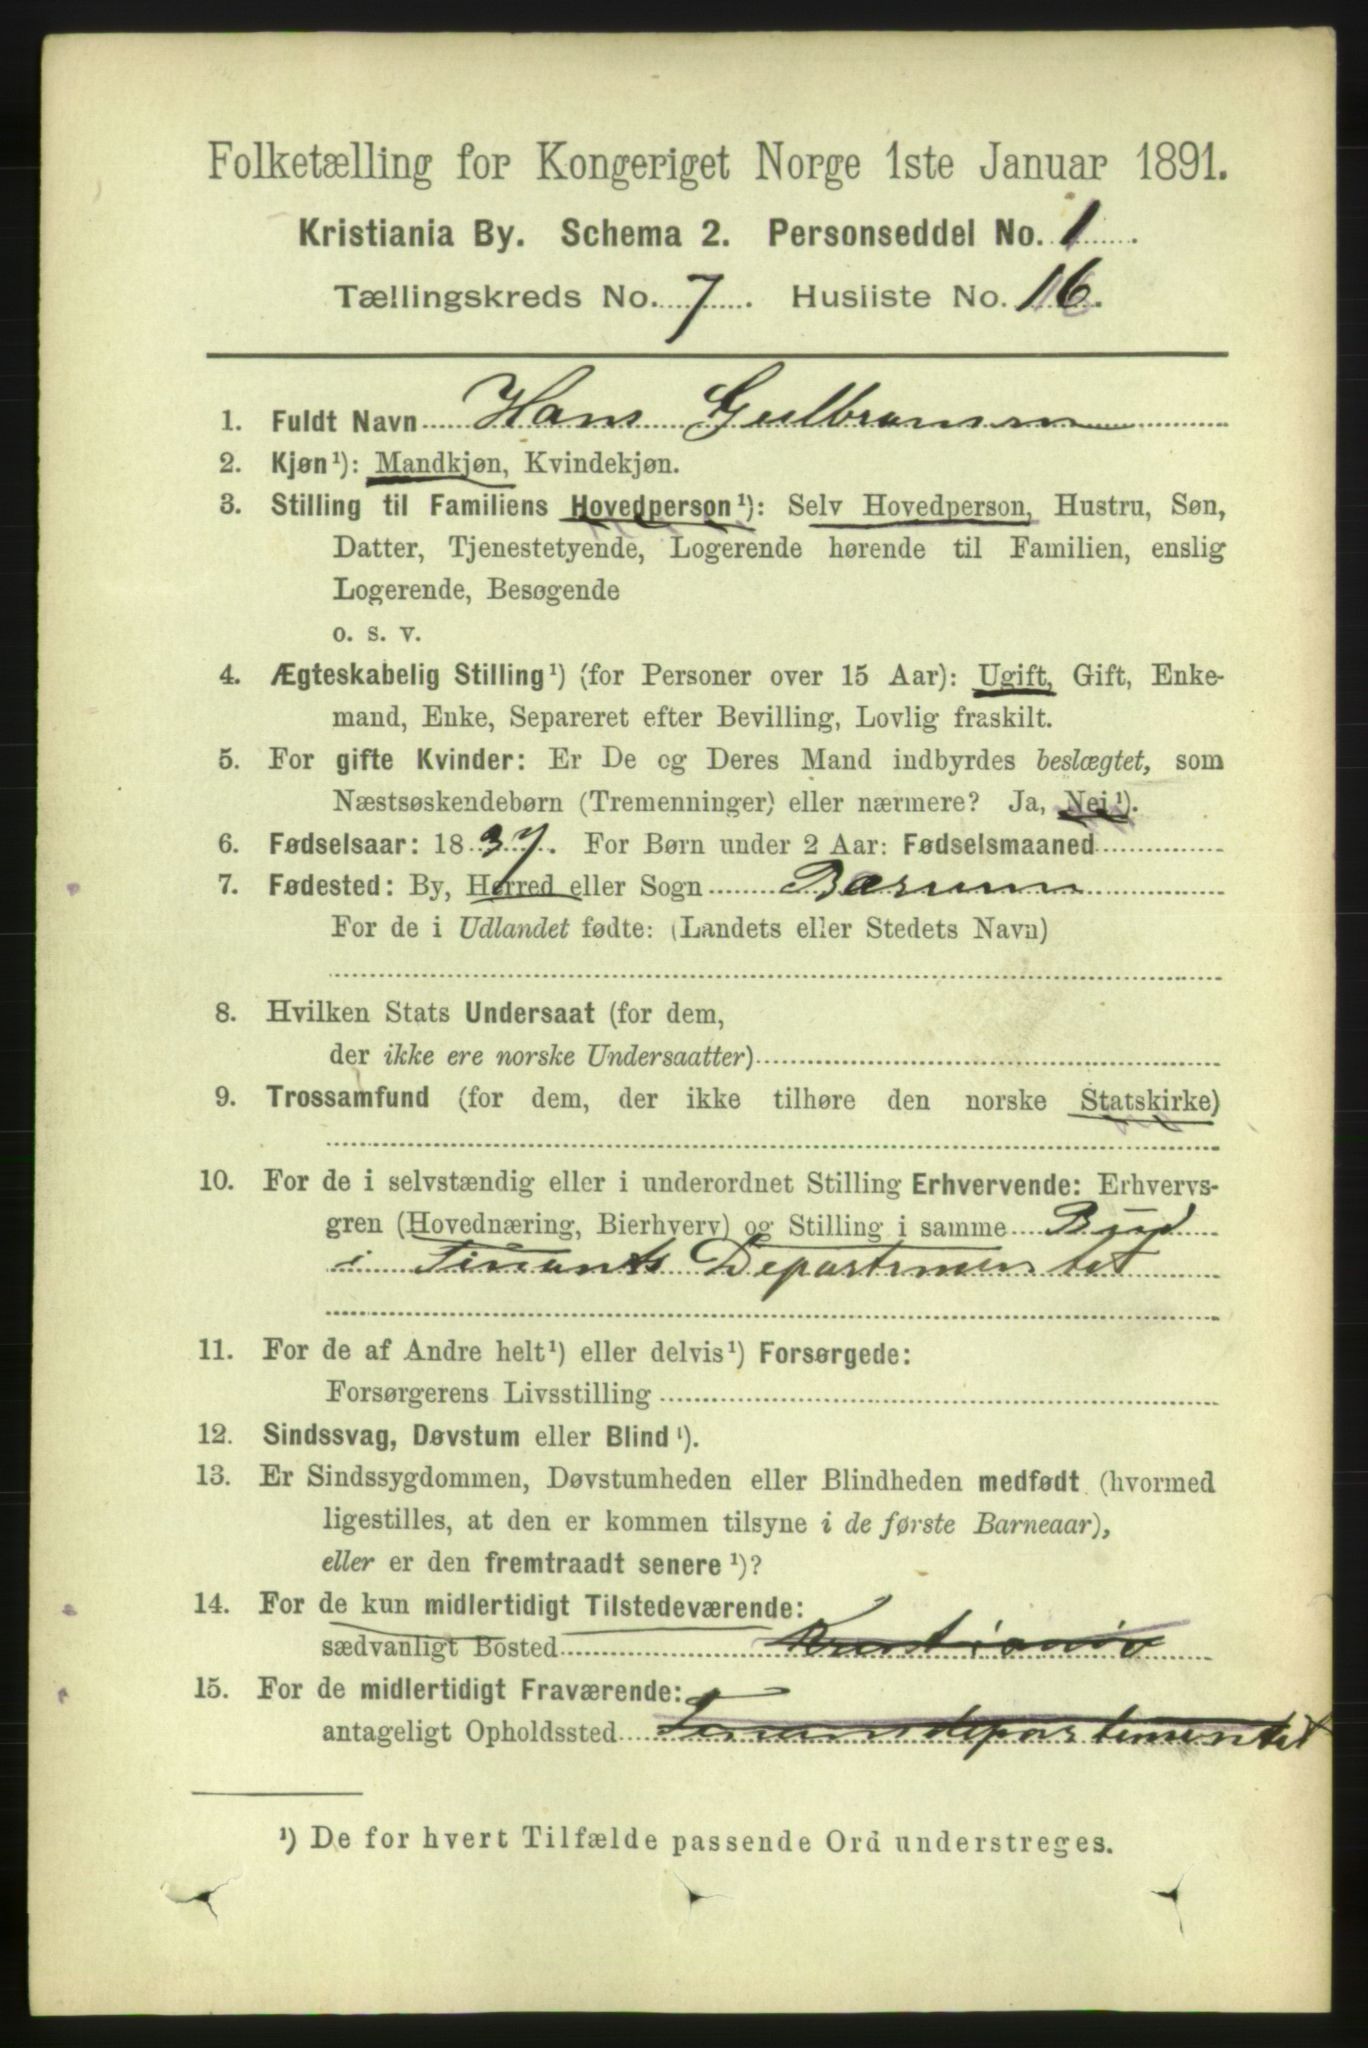 Folketælling for Kongeriget Norge 1ste Januar 1891.
Kristiania By. Schema 2. Personseddel No. 1
Tællingskreds No. 7. Husliste No. 16.
1. Fuldt Navn Hans Gulbransen
2. Kjøn¹): Mandkjøn, Kvindekjøn.
3. Stilling til Familiens Hovedperson¹): Selv Hovedperson, Hustru, Søn,
Datter, Tjenestetyende, Logerende hørende til Familien, enslig
Logerende, Besøgende
o. s. v.
4. Ægteskabelig Stilling¹) (for Personer over 15 Aar): Ugift, Gift, Enke-
mand, Enke, Separeret efter Bevilling, Lovlig fraskilt.
5. For gifte Kvinder: Er De og Deres Mand indbyrdes beslægtet, som
Næstsøskendebørn (Tremenninger) eller nærmere? Ja, Nei¹).
6. Fødselsaar: 1837. For Børn under 2 Aar: Fødselsmaaned
7. Fødested: By, Herred eller Sogn Bærum
For de i Udlandet fødte: (Landets eller Stedets Navn)
8. Hvilken Stats Undersaat (for dem,
der ikke ere norske Undersaatter)
9. Trossamfund (for dem, der ikke tilhøre den norske Statskirke)
10. For de i selvstændig eller i underordnet Stilling Erhvervende: Erhvervs-
gren (Hovednæring, Bierhverv) og Stilling i samme Bud
i Finants Departementet
11. For de af Andre helt¹) eller delvis¹) Forsørgede:
Forsørgerens Livsstilling
12. Sindssvag, Døvstum eller Blind¹).
13. Er Sindssygdommen, Døvstumheden eller Blindheden medfødt (hvormed
ligestilles, at den er kommen tilsyne i de første Barneaar),
eller er den fremtraadt senere¹)?
14. For de kun midlertidigt Tilstedeværende:
sædvanligt Bosted Kristiania
15. For de midlertidigt Fraværende:
antageligt Opholdssted Finansdepartementet
¹) De for hvert Tilfælde passende Ord understreges.